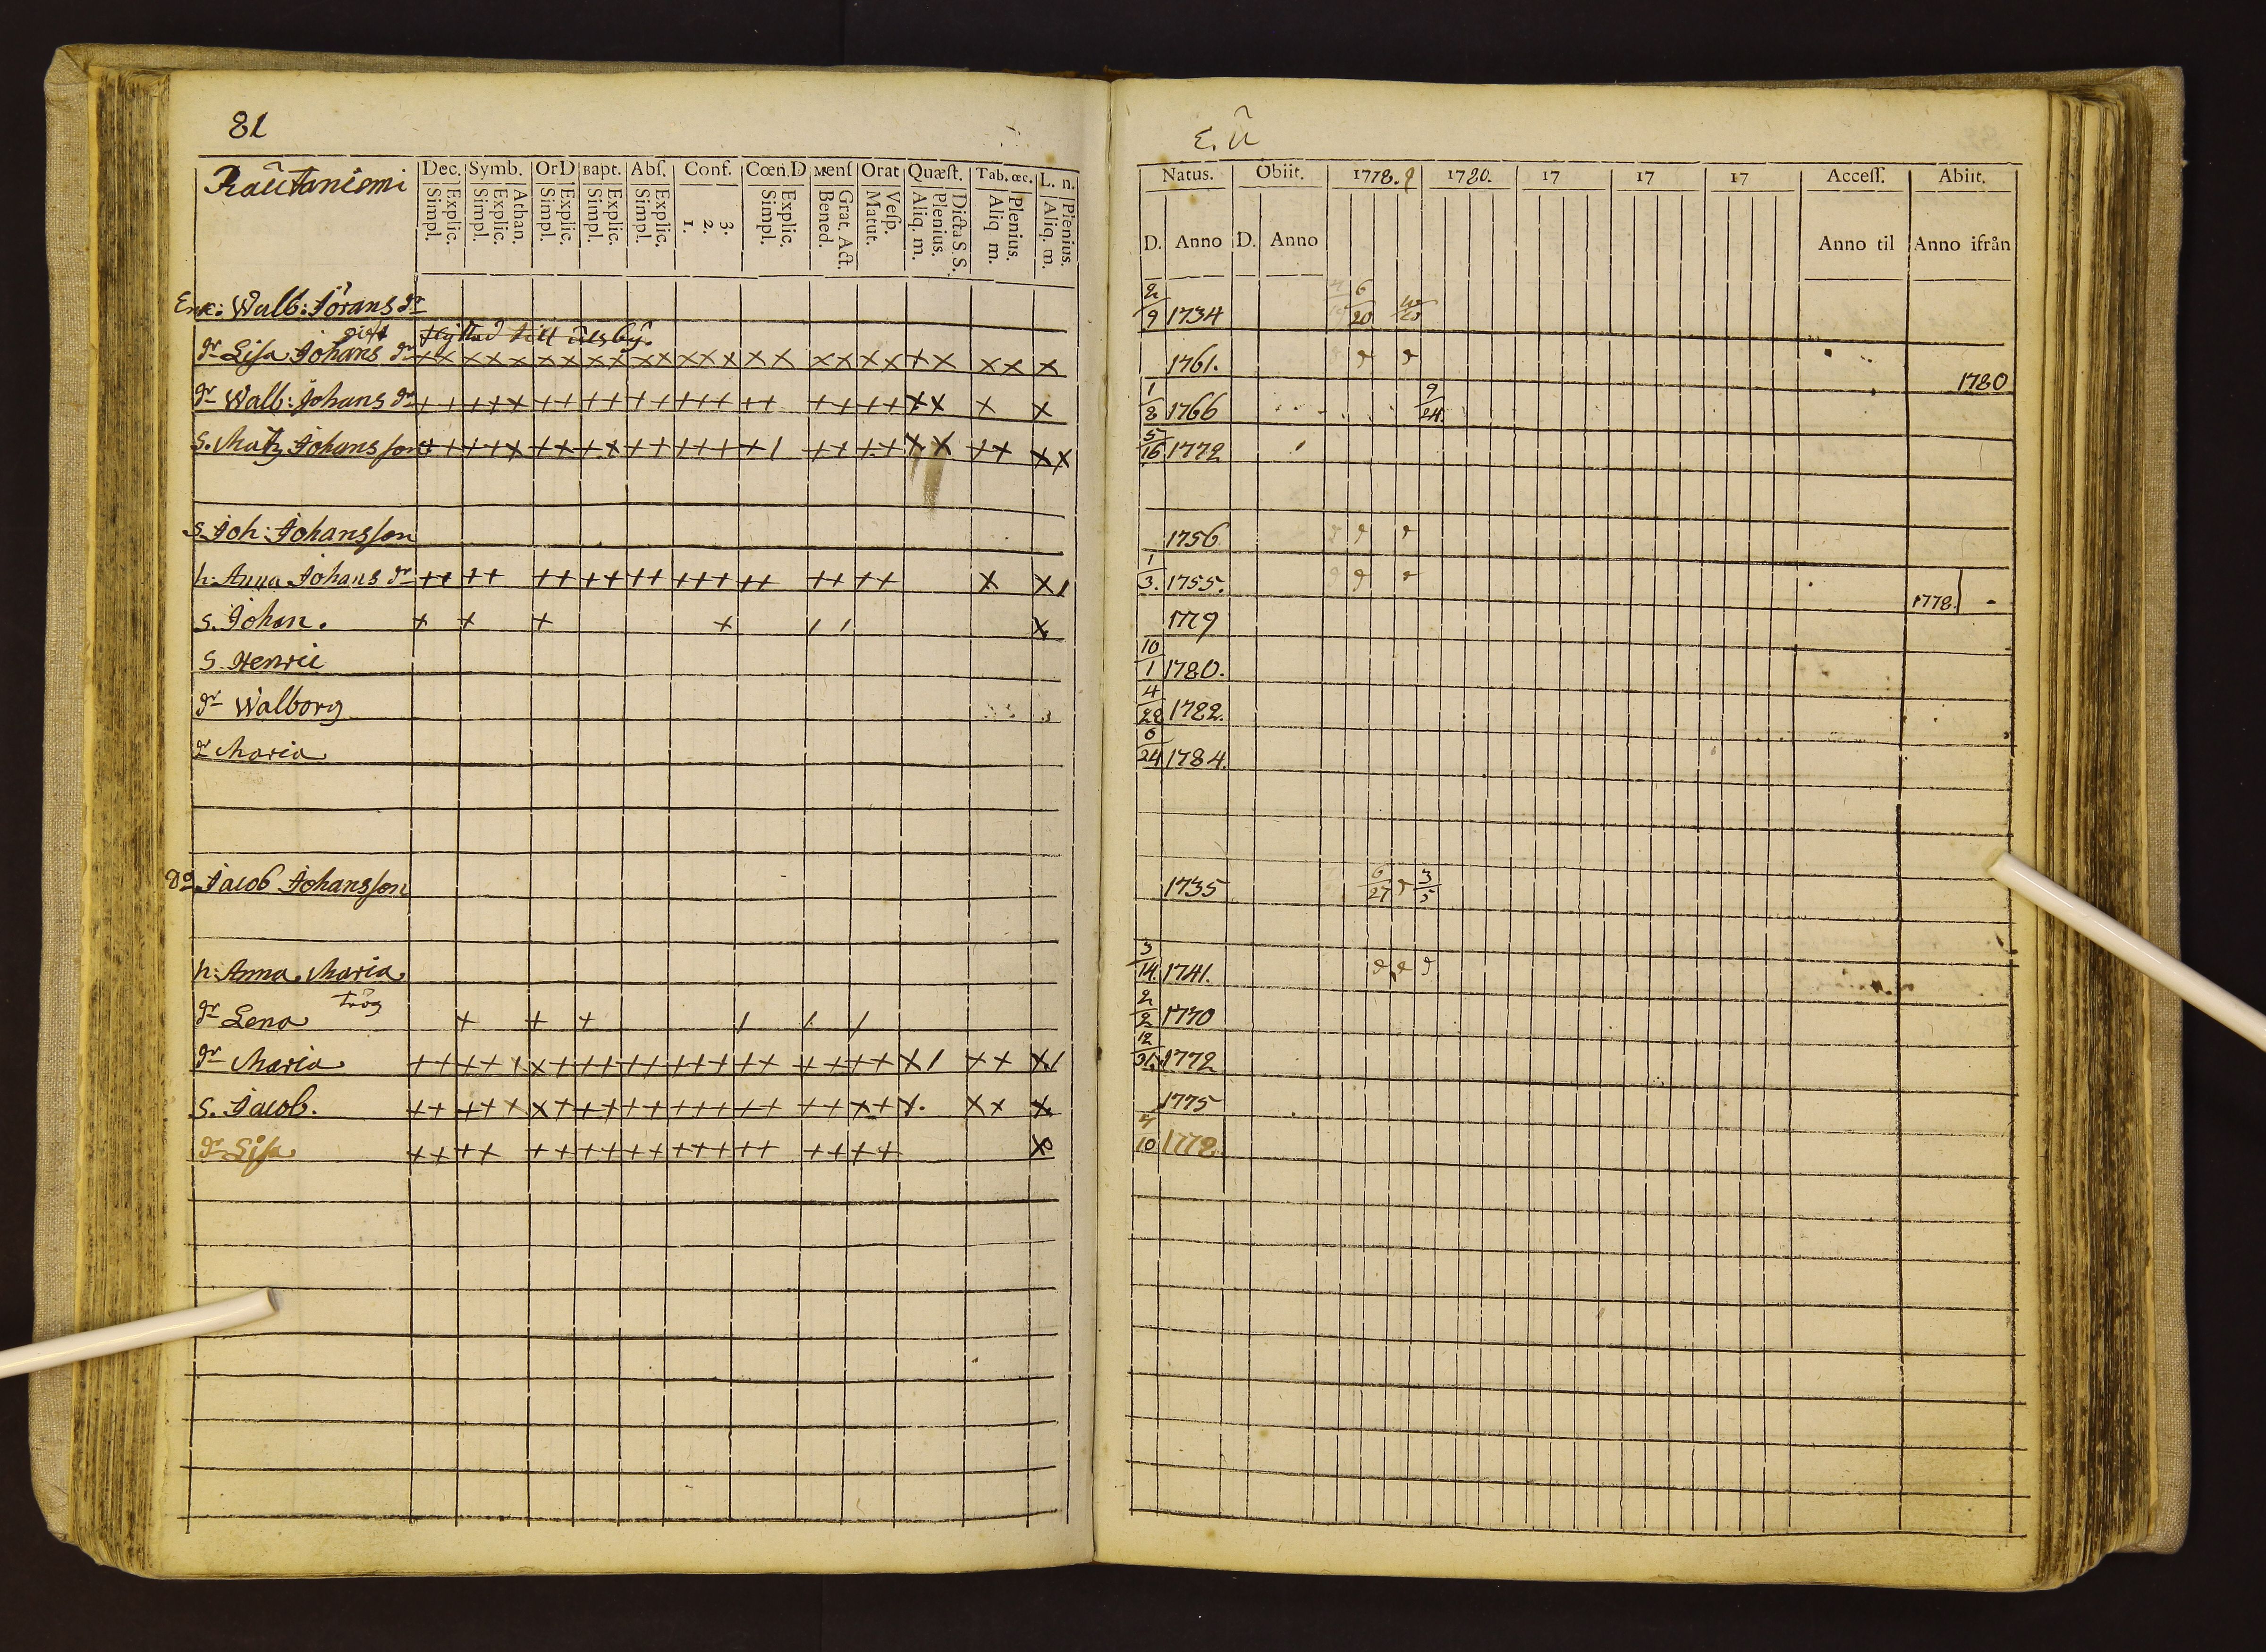 81
Raütaniemi
Dec. Symb. OrD Bapt. Abſ. Conf. Cœn.D Menſ Orat Quæſt. Tab. œc. L. n.
Explic. Simpl. Athan. Explic. Simpl. Explic. Simpl. Explic. Simpl. Explic. Simpl. 3. 2. 1. Explic. Simpl. Grat. Act. Bened. Veſp. Matut. Dicta S. S. Plenius. Aliq. m. Plenius. Aliq m. Plenius. Aliq. m.
Enk: Walb: Jörans dr
gift flyttad till Ulsby.
dr Lisa Johans dr ++ +++ ++ ++ ++ +++ ++ ++ ++ ++ ++ +
dr Walb: Johans dr ++ +++ ++ ++ ++ +++ ++ ++ ++ ++ + +
S. Matz Johansson ++ +++ ++ ++ ++ +++ + / ++ ++ ++ ++ ++
S. Joh: Johansson
h: Anna Johans dr ++ ++ ++ ++ ++ +++ ++ ++ ++ + + /
S. Johan. + + + + / / +
S. Henric
dr Walborg
dr Maria
Do Jacob Johansson
h: Anna Maria
trög
dr Lena + + + / / /
dr Maria ++ +++ ++ ++ ++ +++ ++ ++ ++ + / ++ + /
S. Jacob. ++ +++ ++ ++ ++ +++ ++ ++ ++ + ++ +
dr Lisa ++ ++ ++ ++ ++ +++ ++ ++ ++ +
E. ü
Natus. Obiit. 1778. 9 1780. 17 17 17 Acceſſ. Abiit.
D. Anno D. Anno Anno til Anno ifrån
2/9 1734 6/20
1761. 1780
1/8 1766 9/24.
5/16 1772
1756
1/3. 1755. 1778.
1779
10/1 1780.
4/28 1782.
6/24 1784.
1735 6/27 3/5
3/14. 1741.
2/2 1770
12/31. 1772
1775
4/10 1778